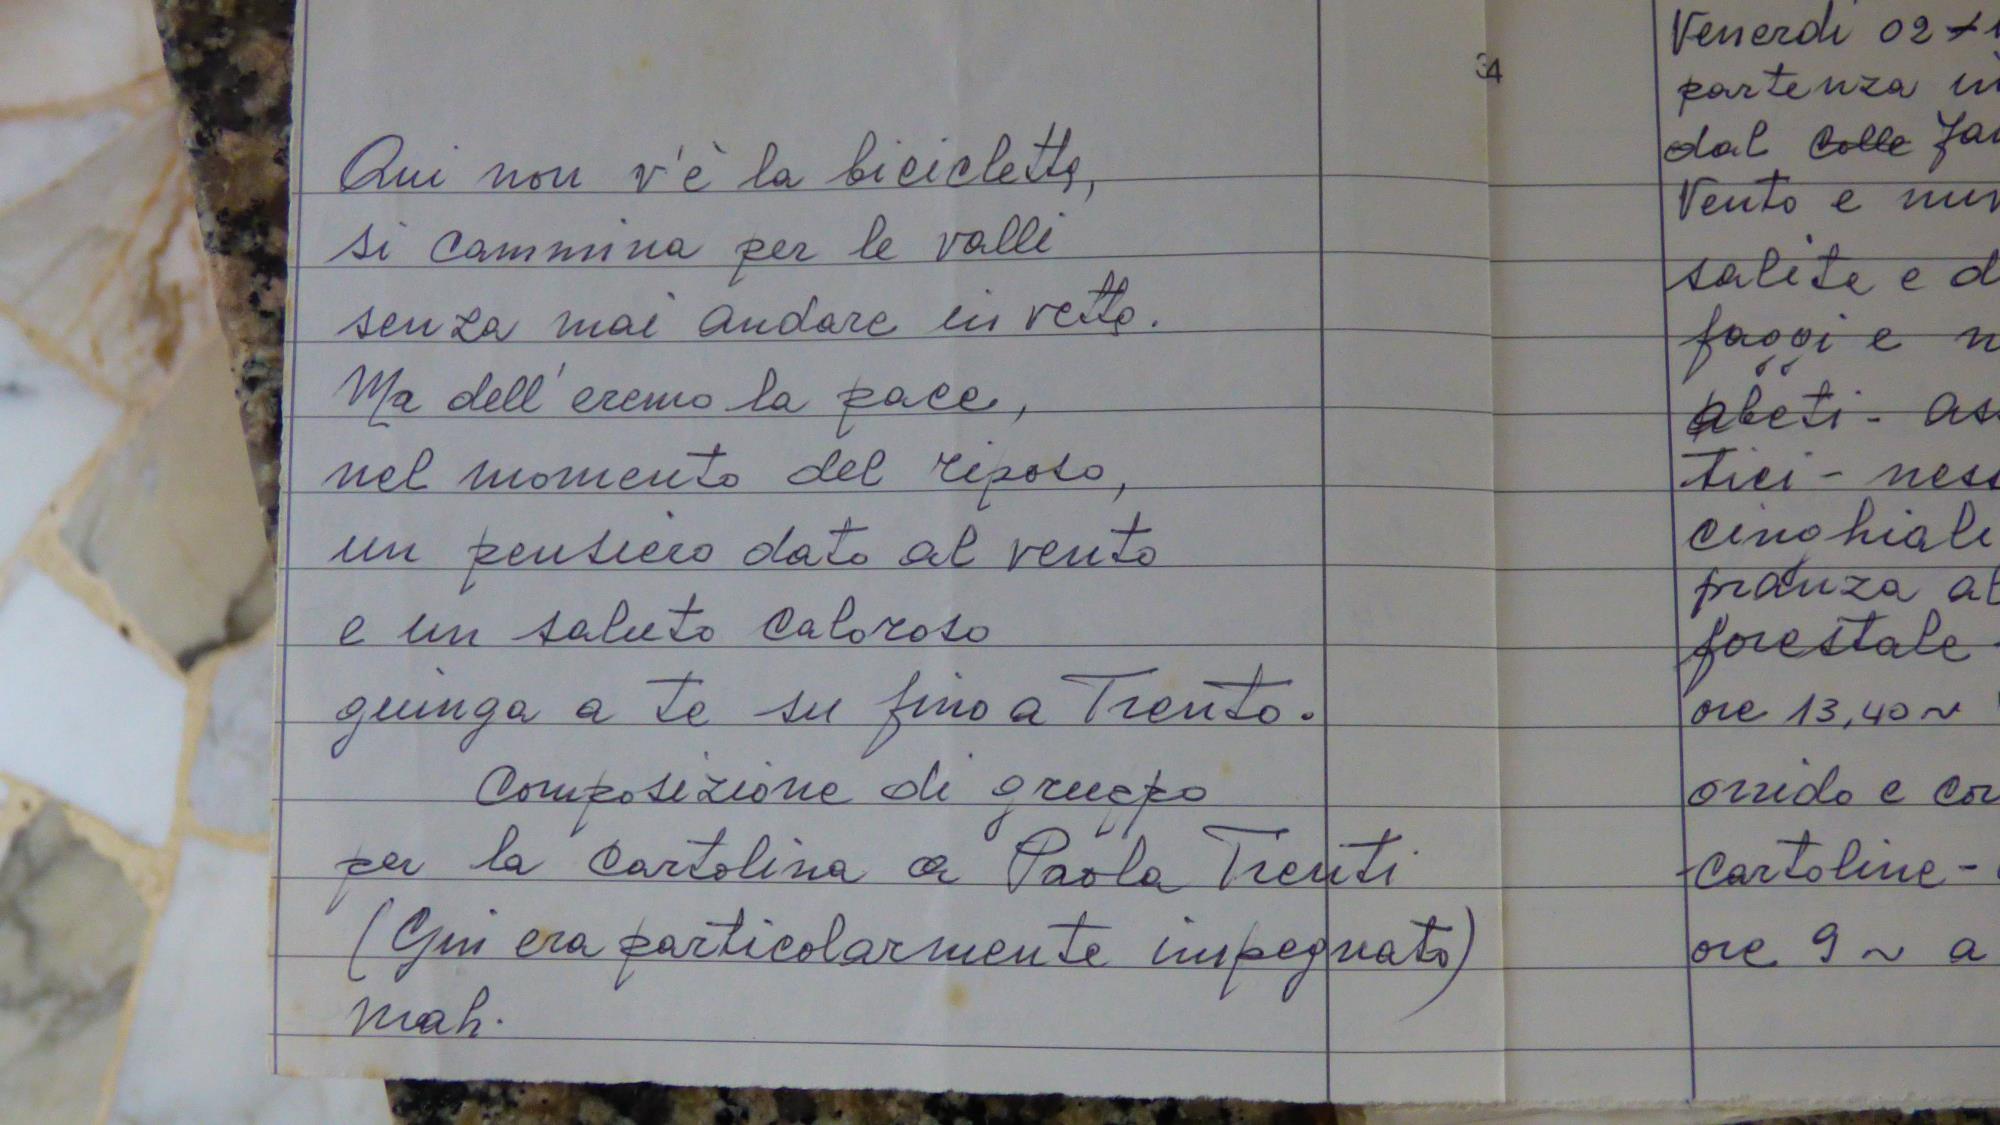 Qui non v'è la bicicletta,
si cammina per le valli
senza mai andare in vetta.
Ma dell'eremo la pace,
nel momento del riposo,
un pensiero dato al vento
e un saluto caloroso
guinga a te su fino a Trento.
Composizione di gruppo
per la cartolina a Paola Trenti
(Gin era particolarmente impegnato)
mah.
34
Venerdi 02
partenza
dal Colle
Vento e
salite e
faggi e
abeti -
tici -
cinghiali
pranza
forestale
ore 13,40 ~
orrido e
cartoline -
ore 9 ~ a